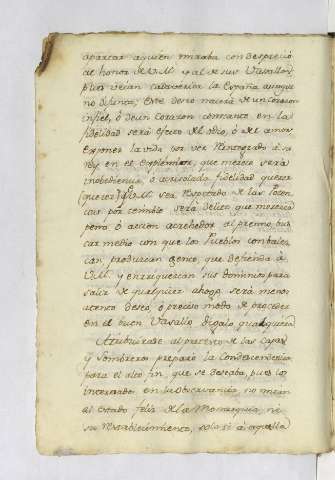 apartar aquien miraba con desprecio
el honor de V.M. y al de sus Vasallos,
pues veian cadaverica la España aunque
no difunta; Este deseo nacerá de un Corazon
infiel, ó de un corazon constante en la
fidelidad será efecto del odio, ó de amor
exponer la vida por ver Reintegrado á su
Rey en el esplendor, que merece será
inobediencia, ó acrisolada fidelidad querer
que V.M. sea Respetado de las Poten
cias por temible será delito, que merezca
pena ó accion acrehedora al premio, bus
car medio con que los Pueblos combalez
can, produzcan gente que defienda á
V.M. y enriquezcan sus dominios para
salir de qualquier ahogo será menos
atento deseo, ó preciso modo de proceder
en el buen Vasallo digalo qualquiera
Atribuirase al pretexto de las Capas
y Sombreros preparó la Condescendencia
para el alto fin, que se deseaba, pues los
interesados en la Observancia, no miran
al estado feliz de la Monarquia, ni
su Restablecimiento, solo si á aquella